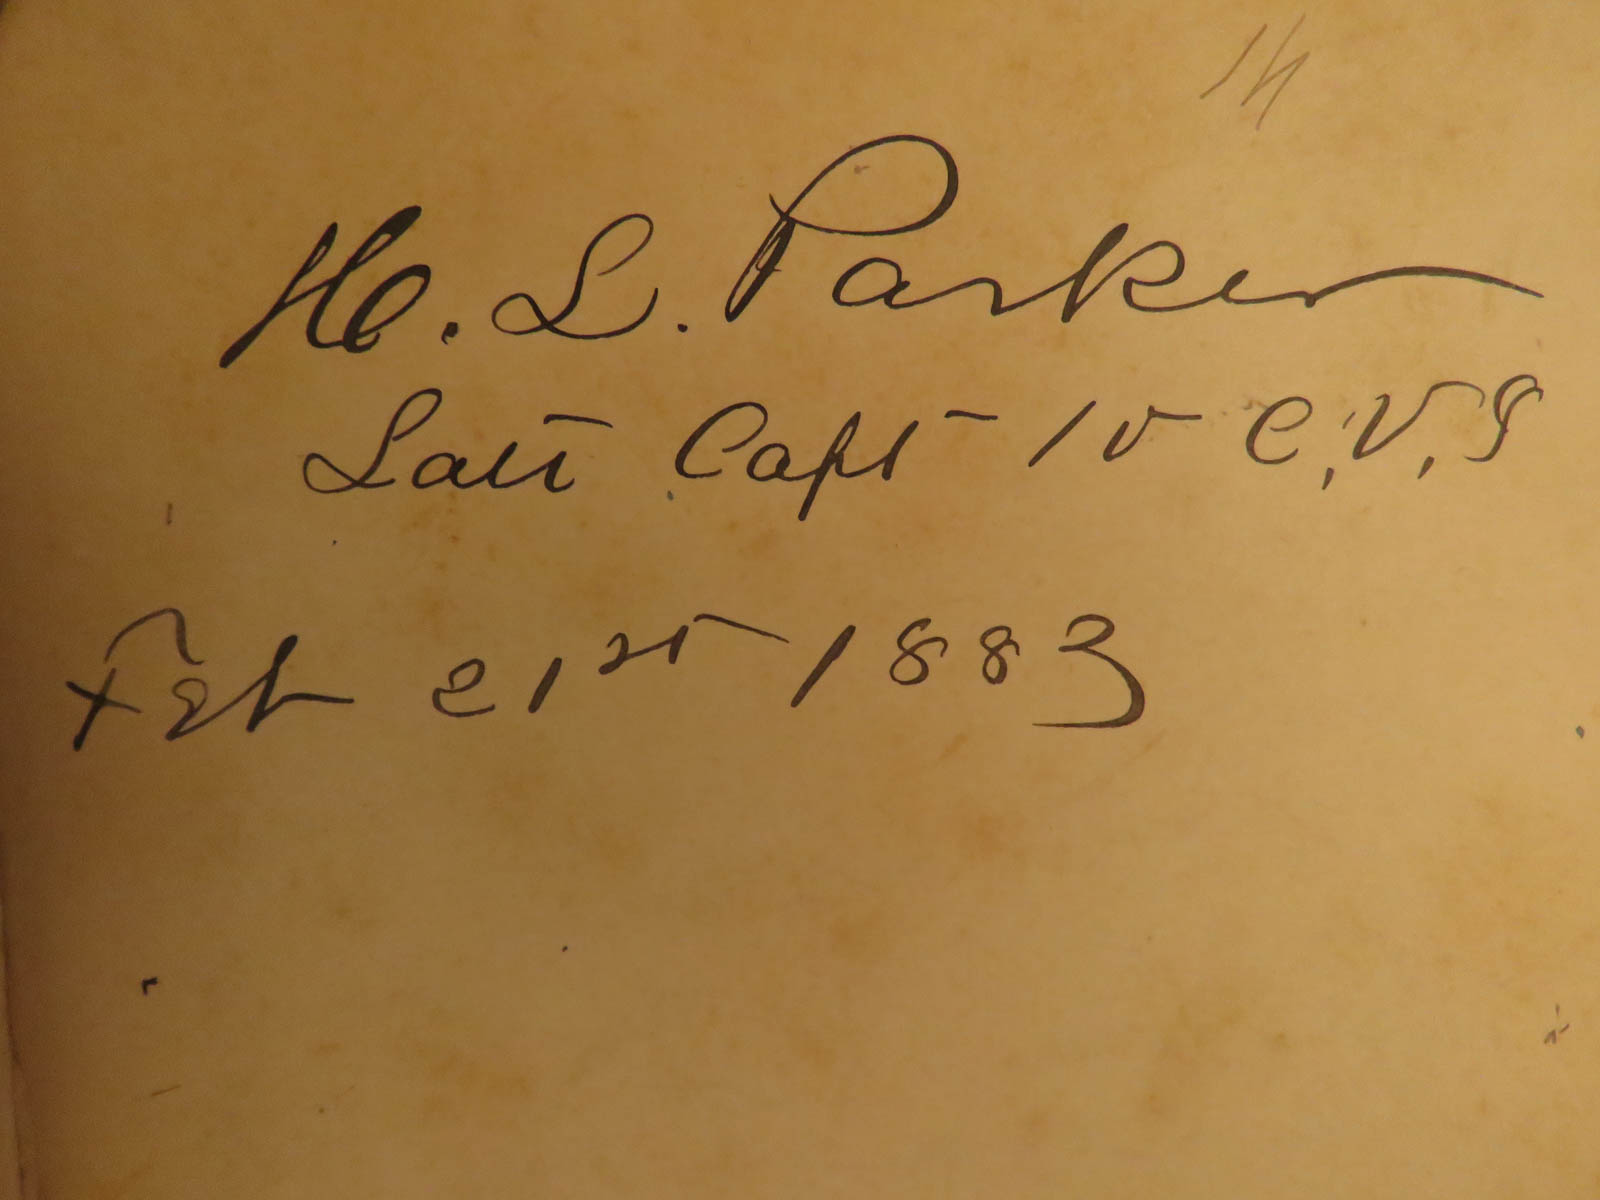 14
H. L. Parker
Late Capt 10 C. V. I
Feb 21st / 1883